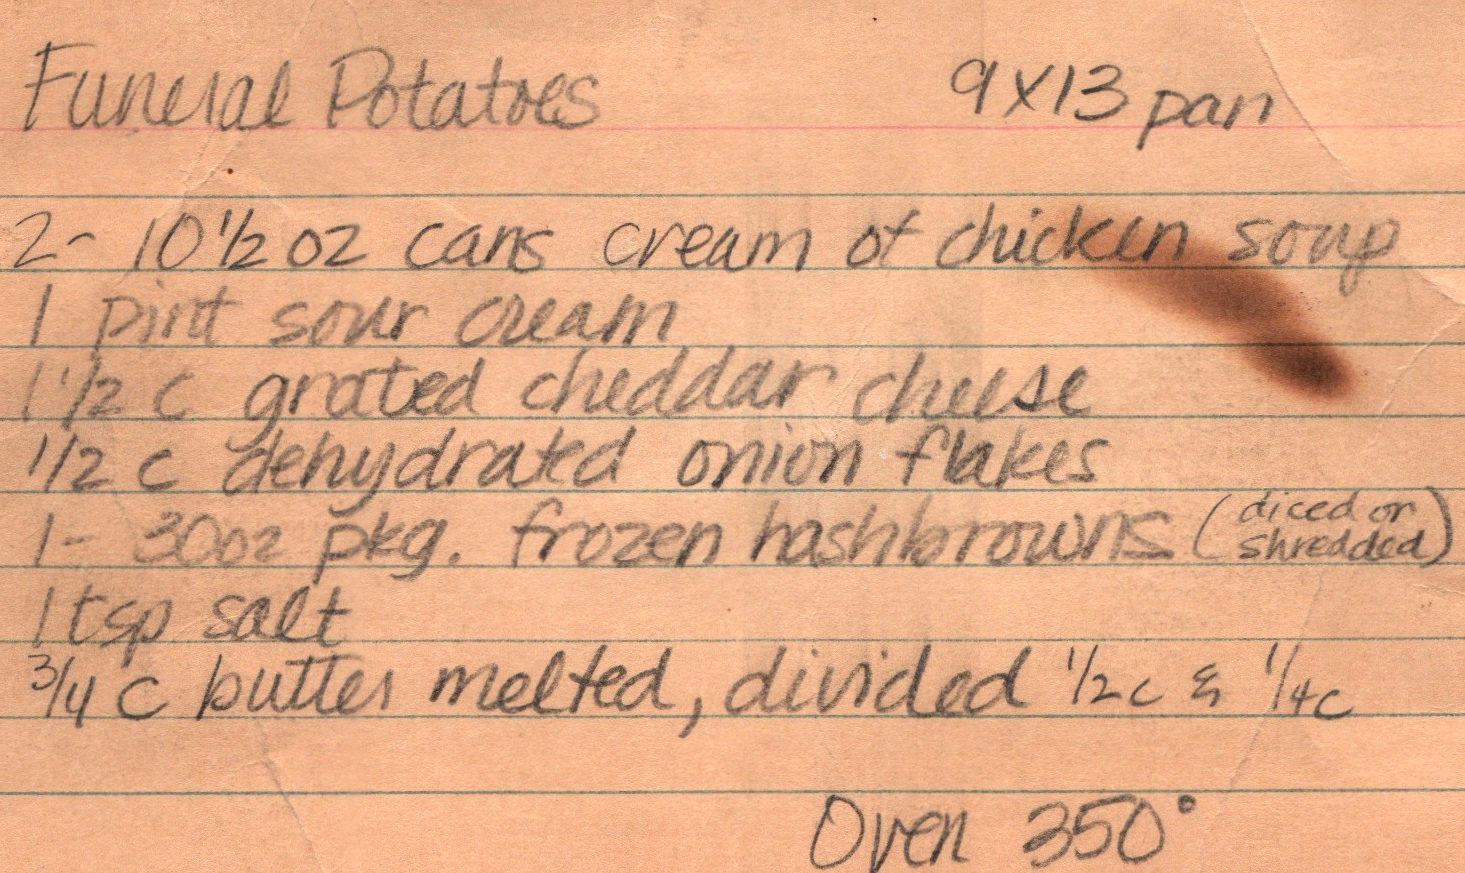 Funeral Potatoes 9x13 pan
2- 10 1/2 oz cans cream of chicken soup
1 pint sour cream
1 1/2 c grated cheddar cheese
1/2 c dehydrated onion flakes
1- 30oz pkg. frozen hashbrowns (diced or shredded)
1 tsp salt
3/4 c butter melted, divided 1/2c & 1/4c
Oven 350°